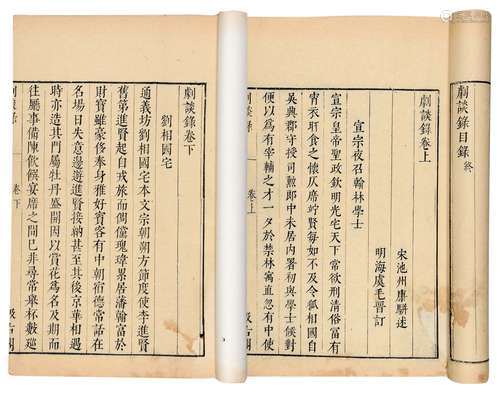 劇談錄目錄 終
劇談錄卷上
宋池州康駢述
明海虞毛晉訂
宣宗夜召翰林學士
宣宗皇帝聖政欽明光宅天下常欲刑清俗富有
宵衣旰食之懷仄席竚賢每如不及令狐相國自
吳興郡守授司勳郎中未居內署初與學士候對
便以爲有宰輔之才一夕於禁林寓直忽有中使
卷上
劇談錄卷下
劉相國宅
通義坊劉相國宅本文宗朝朔方節度使李進賢
舊第進賢起自戎旅而倜儻瑰瑋累居藩翰富於
財寶雖豪侈奉身雅好賓客有中朝宿德常話在
名場日失意邊遊進賢接納甚至其後京華相遇
時亦造其門屬牡丹盛開因以賞花爲名及期而
往廳事備陳飲饌宴席之間已非尋常舉杯數巡
卷下